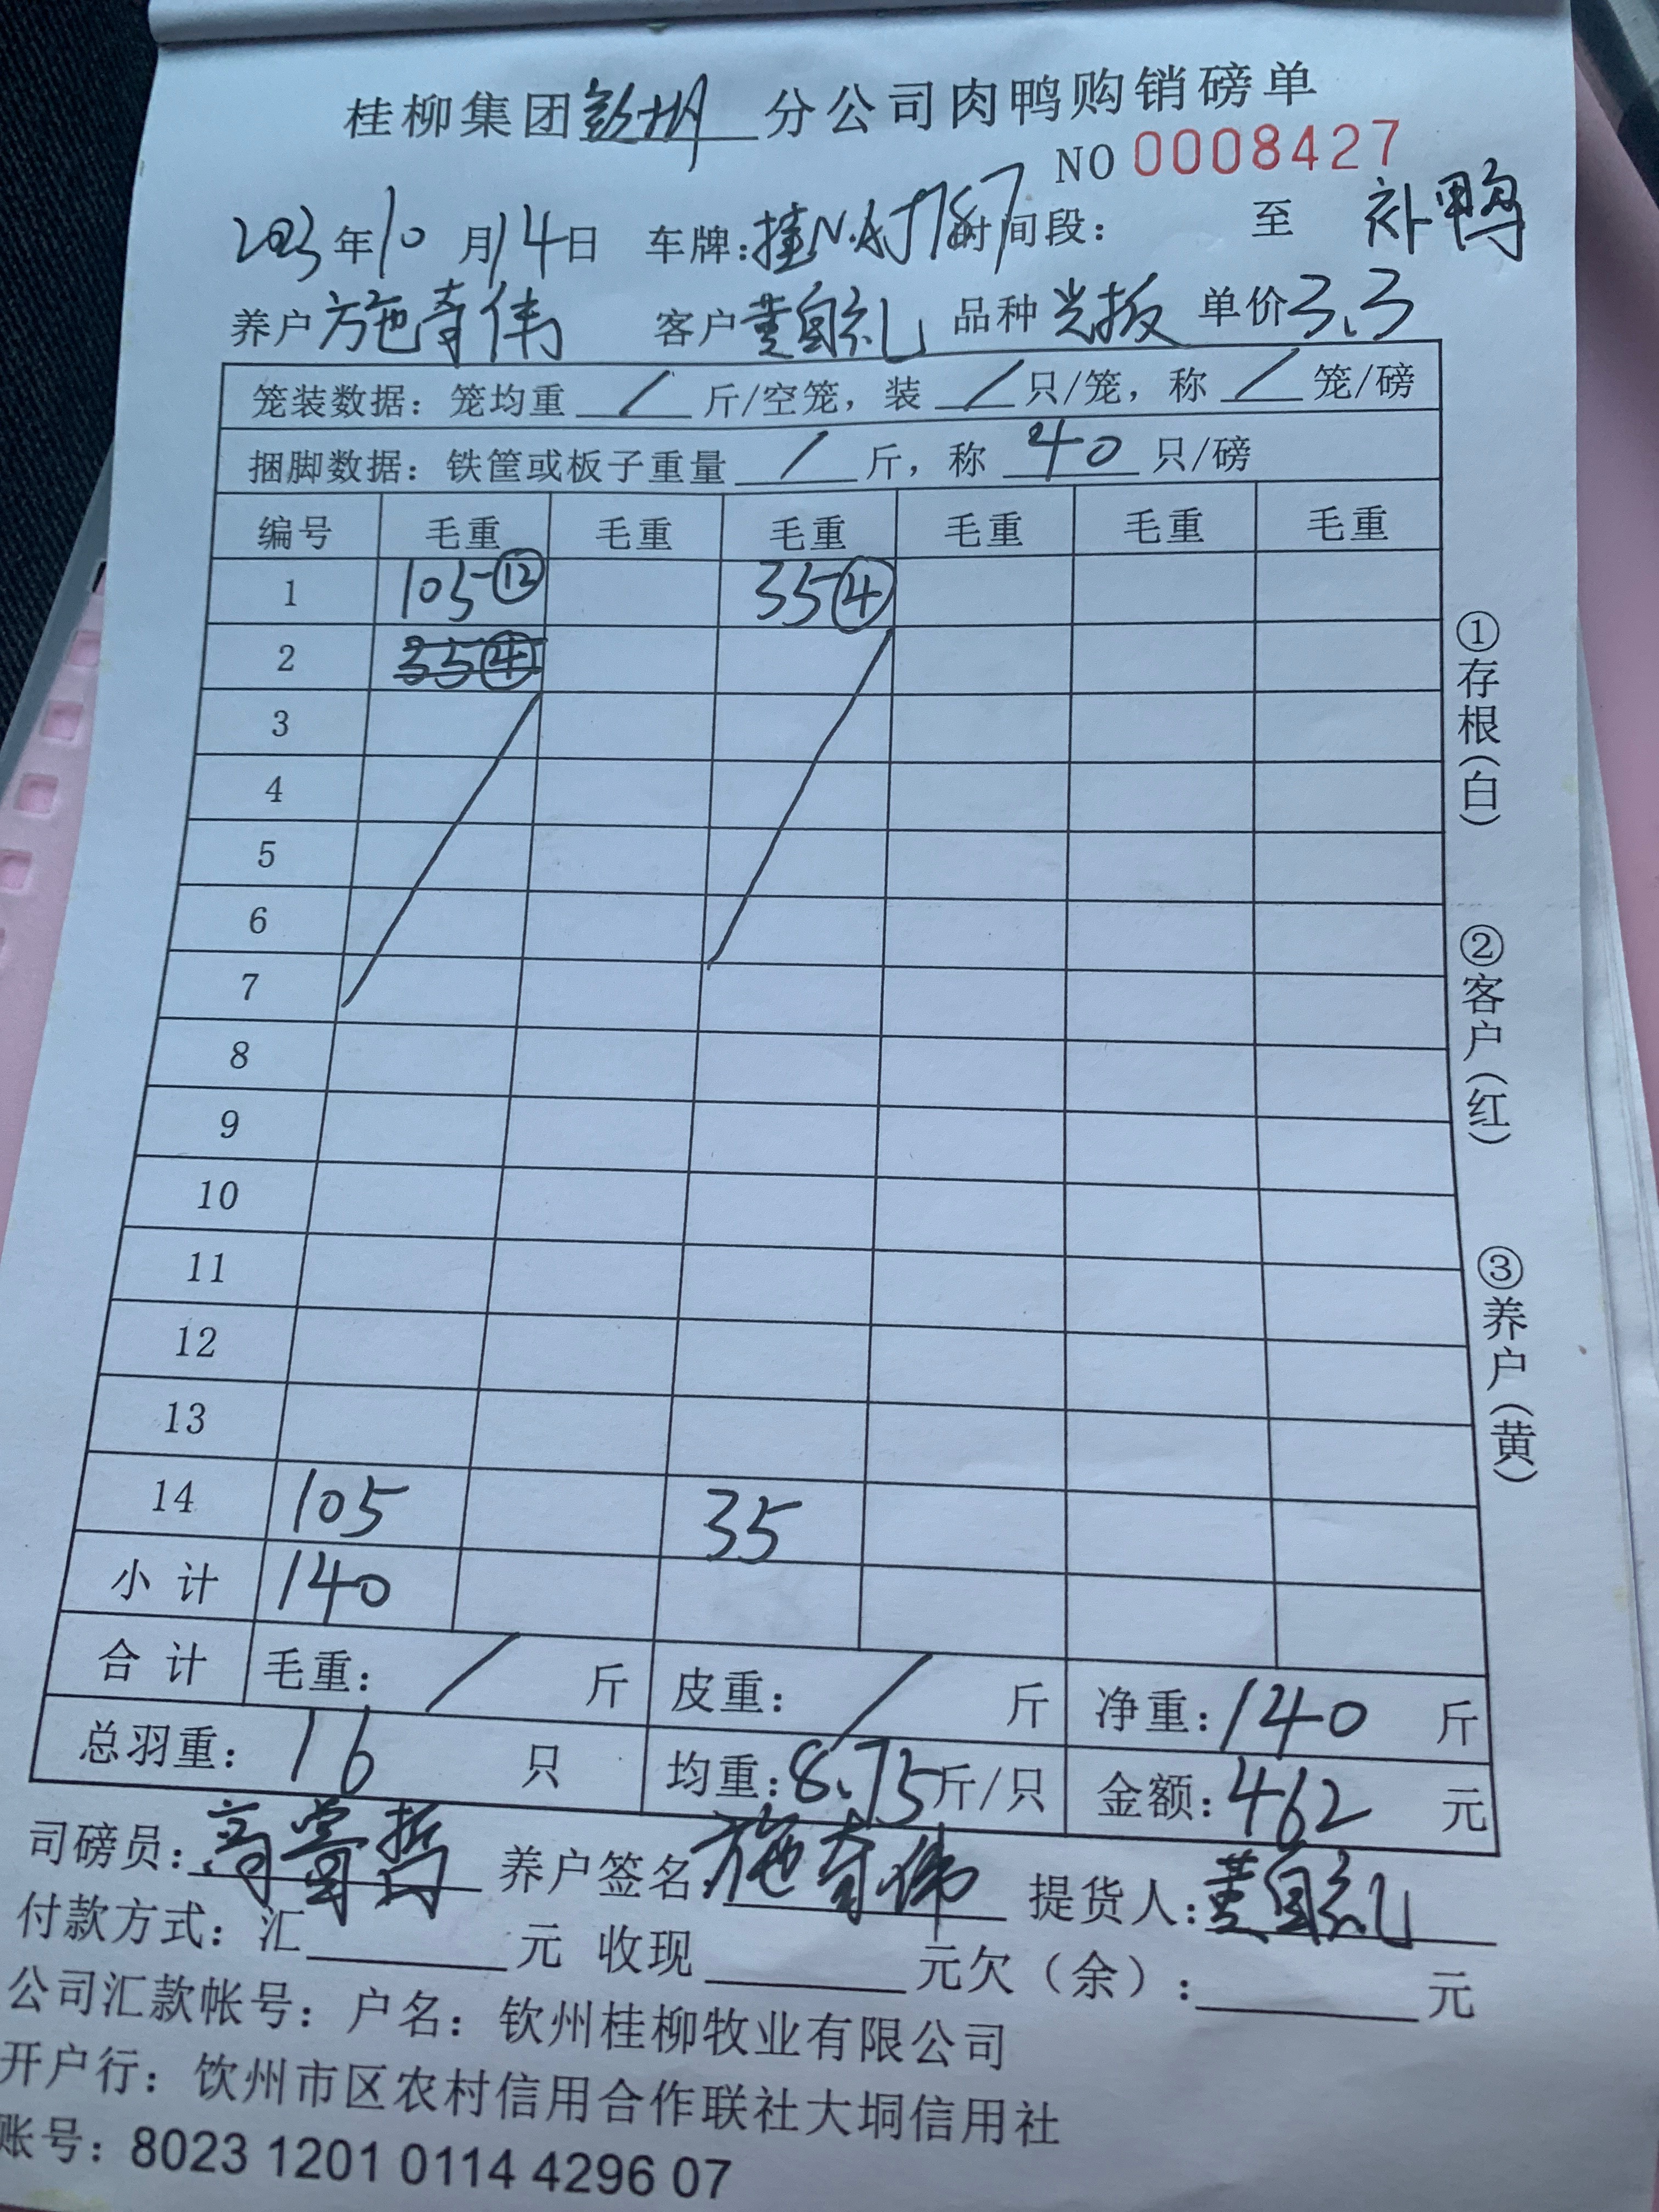 桂柳集团 分公司肉鸭购销磅单
NO 0008427
2023年10月14日 车牌: 时间段: 至 补鸭
养户施奇伟 客户黄自礼 品种光扳 单价3.3
笼装数据:笼均重 / 斤/空笼,装 / 只/笼,称 / 笼/磅
捆脚数据:铁筐或板子重量 / 斤,称 40 只/磅
编号 毛重 毛重 毛重 毛重 毛重 毛重
1 105⑫ 35④
2 35④
3
4
5
6
7
8
9
10
11
12
13
14 105 35
小计 140
合计 毛重: / 斤 皮重: / 斤 净重:140 斤
总羽重:16 只 均重:8.75斤/只 金额:462 元
司磅员: 养户签名施奇伟 提货人:黄自礼
付款方式:汇 元 收现 元欠(余): 元
公司汇款帐号:户名:钦州桂柳牧业有限公司
开户行:钦州市区农村信用合作联社大垌信用社
账号:8023 1201 0114 4296 07
①存根(白)
②客户(红)
③养户(黄)